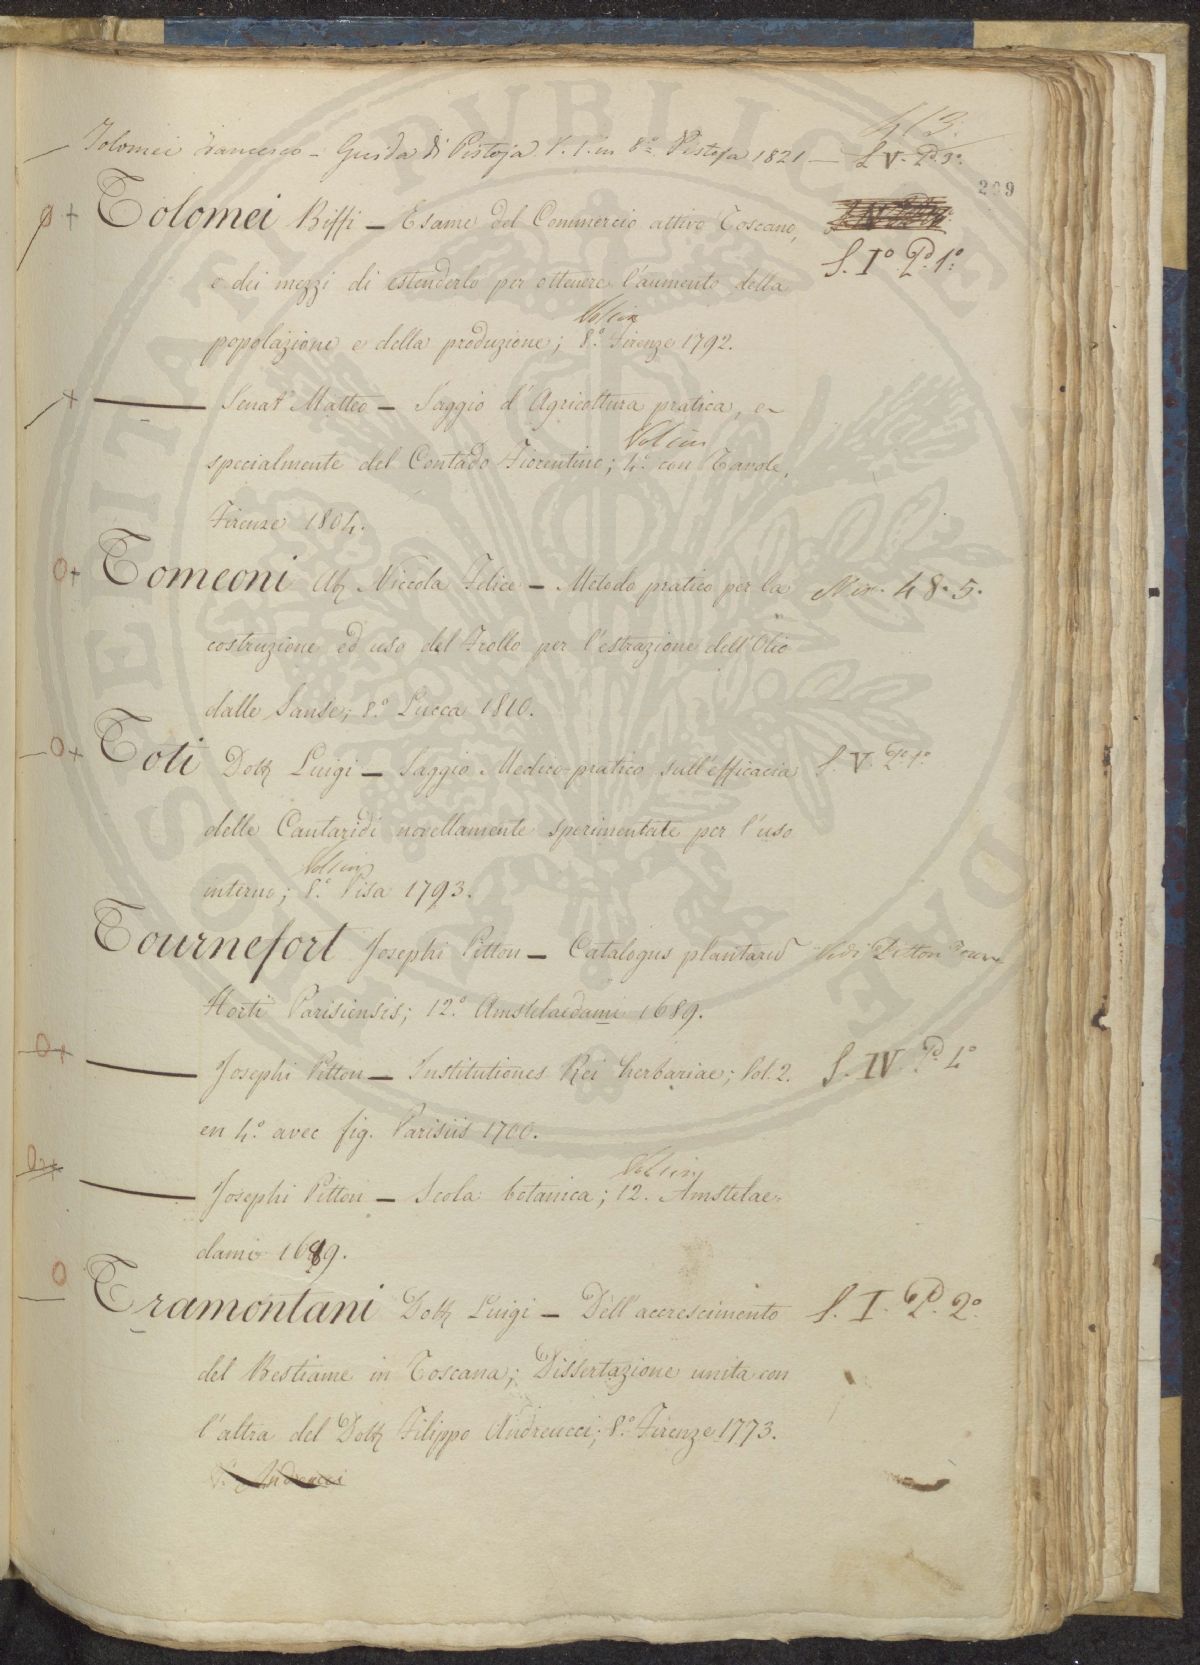 413.
Tolomei Francesco - Guida di Pistoja V. 1. in 8º Pistoja 1821 — S. V. Pº 3º
209
Tolomei Biffi — Esame del Commercio attivo Toscano,
S. Iº Pº 1º
e dei mezzi di estenderlo per ottenere l'aumento della
Vol. un
popolazione e della produzione; 8º Firenze 1792.
——— Senatº Matteo — Saggio d'Agricoltura pratica, e-
Vol. un
specialmente del Contado Fiorentino; 4º con Tavole.
Firenze 1804.
Tomeoni Ab. Niccola Felice — Metodo pratico per la Min. 48. 5.
costruzione ed uso del Frollo per l'estrazione dell'Olio
dalle Sanse; 8º Lucca 1810.
Toti Dott. Luigi — Saggio Medico-pratico sull'efficacia S. V. Pº 1º
delle Cantaridi novellamente sperimentate per l'uso
Vol. un
interno; 8º Pisa 1793.
Tournefort Josephi Pitton — Catalogus plantarū Vedi Pitton Tourn
Horti Parisiensis; 12º Amstelaedami 1689.
——— Josephi Pitton — Institutiones Rei herbariae; Vol. 2. S. IV. Pº 1º
en 4º avec fig. Parisiis 1700.
Vol. un
——— Josephi Pitton — Scola botanica; 12. Amstelae-
dami 1689.
Tramontani Dott. Luigi — Dell'accrescimento S. I. Pº 2º
del Bestiame in Toscana; Dissertazione unita con
l'altra del Dott. Filippo Andreucci; 8º Firenze 1773.
V. Andreucci